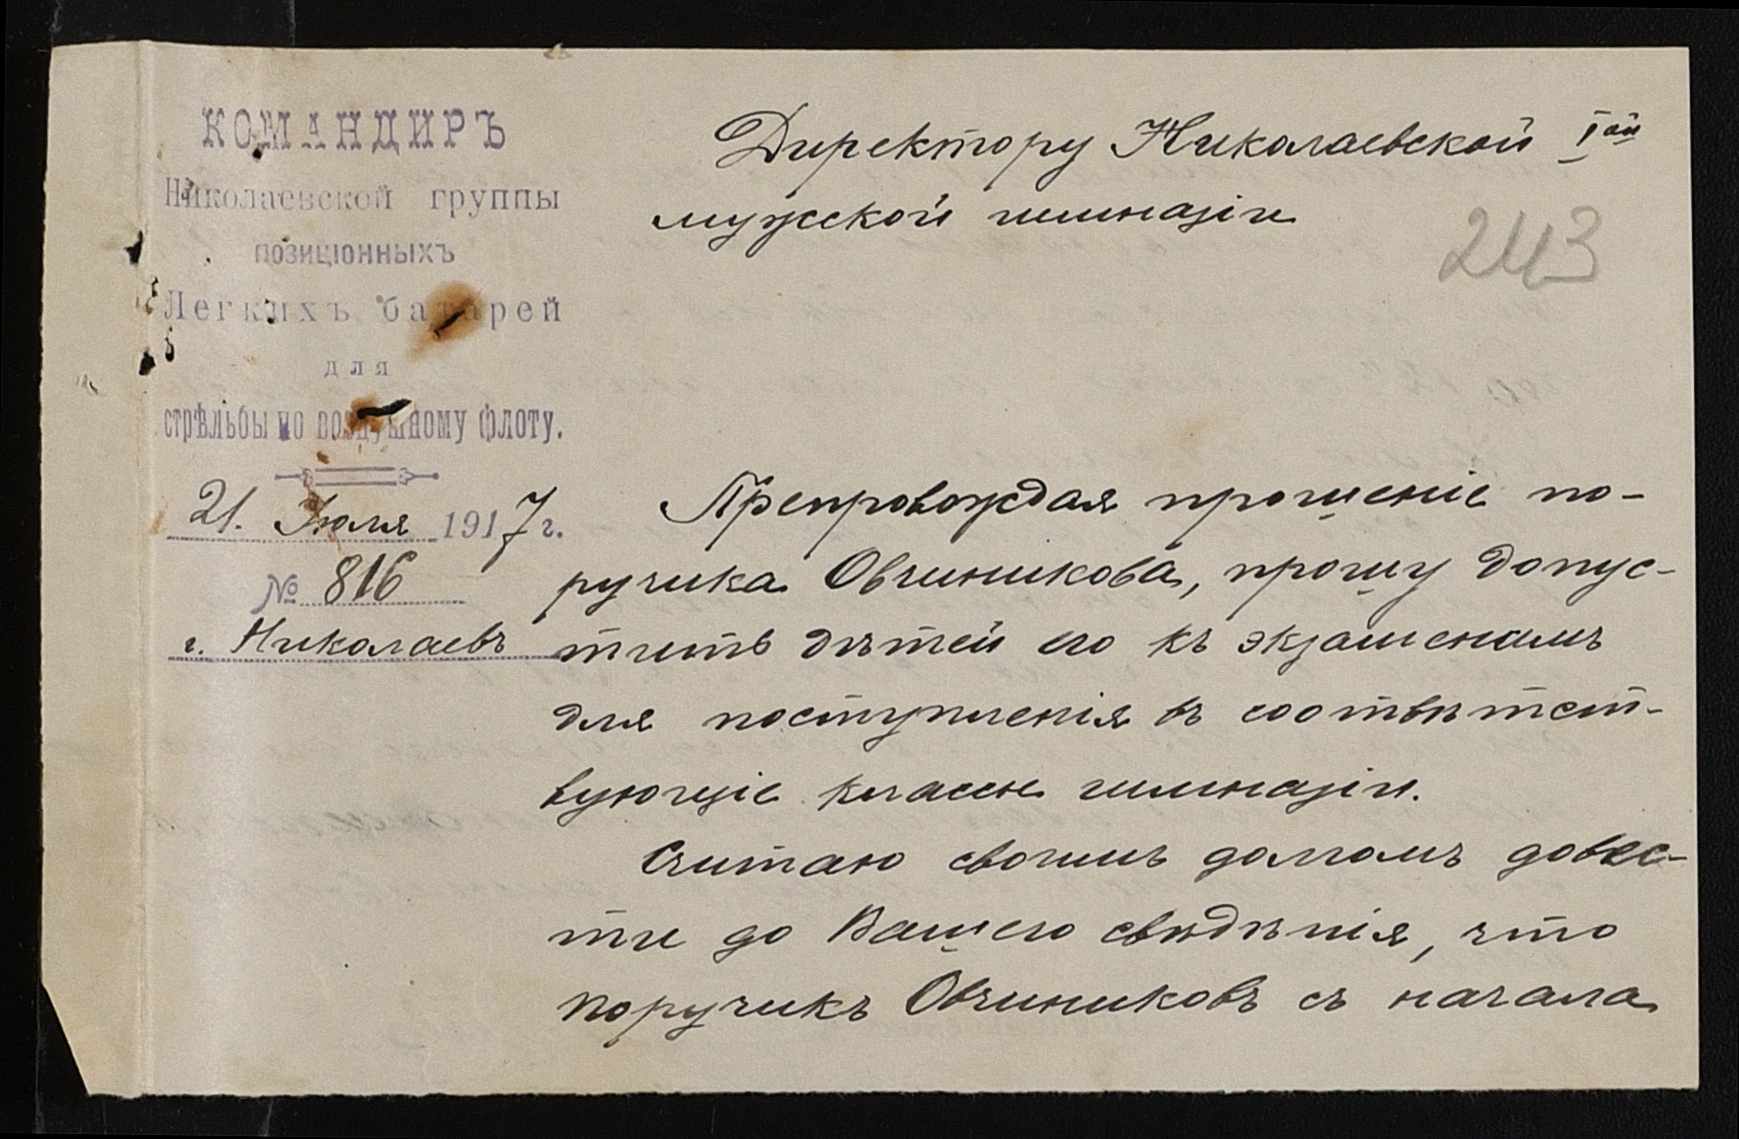 КОМАНДИРЪ
Николаевской группы
позиціонныхъ
Легкихъ батарей
для
стрѣльбы по воздушному флоту.
21. Іюля 1917 г.
№ 816
г. Николаевъ
Директору Николаевской Iой
мужской гимназіи
243
Препровождая прошеніе по-
ручика Овчиникова, прошу допус-
тить дѣтей его къ экзаменамъ
для поступленія въ соотвѣтст-
вующіе классы гимназіи.
Считаю своимъ долгомъ довес-
ти до Вашего свѣдѣнія, что
поручикъ Овчиниковъ съ начала